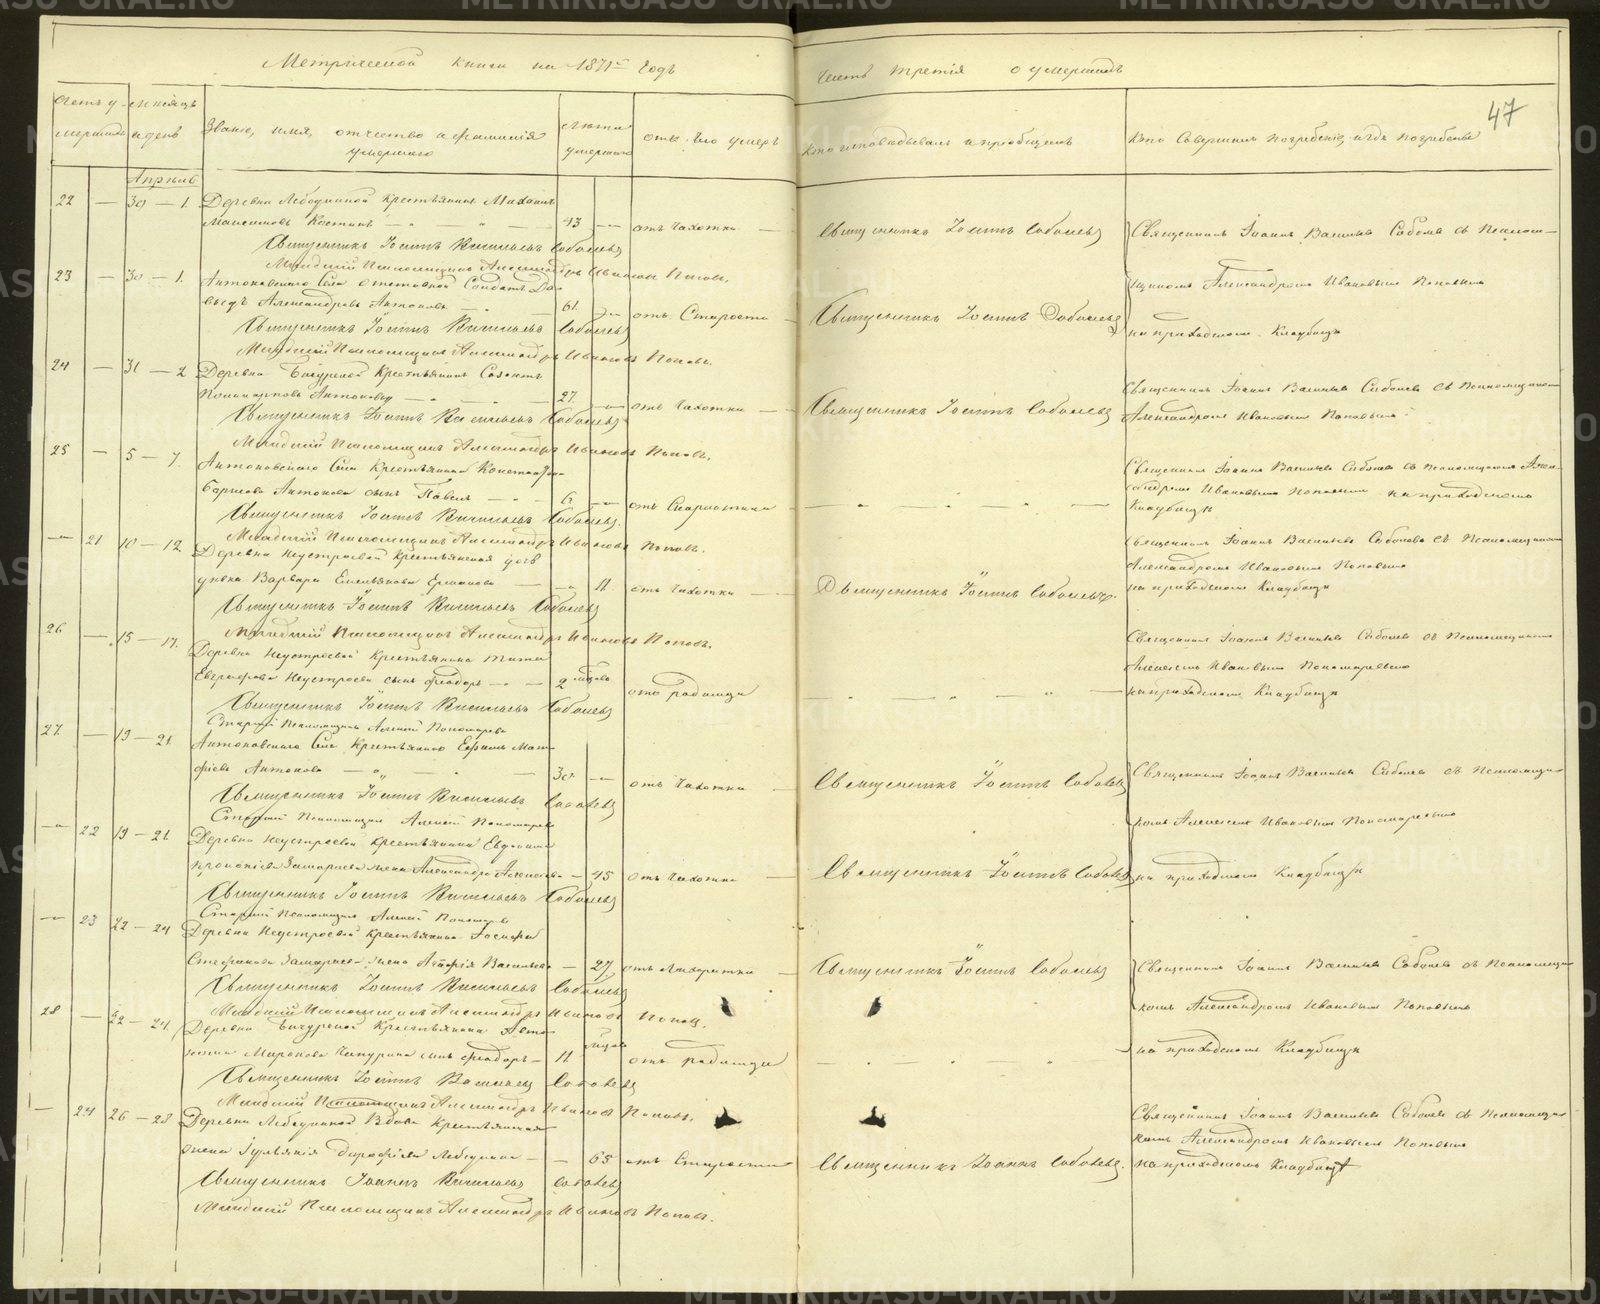 Метрической книги на 1871й годъ
Часть третія о умершихъ
47
Счетъ умершихъ
Мѣсяцъ и день
Званіе, имя, отчество и фамилія умершаго
Лѣта умершаго
отъ чего умеръ
Кто исповѣдывалъ и пріобщалъ
Кто совершалъ погребеніе и гдѣ погребены
Апрѣль
22 — 30 — 1. Деревни Лебедкиной крестьянинъ
Максимовъ Костинъ — 43 — отъ чахотки
Священникъ Іоаннъ Соболевъ
Священникъ Іоаннъ Васильевъ Соболевъ съ Псалом-
Священникъ Іоаннъ Васильевъ Соболевъ
Младшій Псаломщикъ Александръ Ивановъ Поповъ.
щикомъ Александромъ Ивановымъ Поповымъ
23 — 30 — 1. Антоновскаго Села отставной Солдатъ Да-
выдъ Александровъ Антоновъ — 61 — отъ Старости
Священникъ Іоаннъ Соболевъ
на приходскомъ Кладбищѣ
Священникъ Іоаннъ Васильевъ Соболевъ
Младшій Псаломщикъ Александръ Ивановъ Поповъ.
24 — 31 — 2 Деревни Бичуриной Крестьянинъ
Антоновъ — 27 — отъ чахотки
Священникъ Іоаннъ Соболевъ
Священникъ Іоаннъ Васильевъ Соболевъ съ Псаломщикомъ
Александромъ Ивановымъ Поповымъ
Священникъ Іоаннъ Васильевъ Соболевъ
Младшій Псаломщикъ Александръ Ивановъ Поповъ.
25 — 5 — 7. Антоновскаго Села Крестьянина
Борисова Антонова сынъ Павелъ — 6 — отъ Скарлатины
Священникъ Іоаннъ Васильевъ Соболевъ съ Псаломщикомъ Алек-
сандромъ Ивановымъ Поповымъ на приходскомъ
Кладбищѣ
Священникъ Іоаннъ Васильевъ Соболевъ
Младшій Псаломщикъ Александръ Ивановъ Поповъ.
— 21 10 — 12 Деревни Неустроевой крестьянская
Варвара Емельянова — 11 отъ чахотки
Священникъ Іоаннъ Соболевъ.
Священникъ Іоаннъ Васильевъ Соболевъ съ Псаломщикомъ
Александромъ Ивановымъ Поповымъ
на приходскомъ Кладбищѣ
Священникъ Іоаннъ Васильевъ Соболевъ
Младшій Псаломщикъ Александръ Ивановъ Поповъ.
26 — 15 — 17. Деревни Неустроевой Крестьянина Тита
Неустроева сынъ Ѳеодоръ — 2 мѣсяца отъ родимца
Священникъ Іоаннъ Васильевъ Соболевъ съ Псаломщикомъ
Алексѣемъ Ивановымъ Пономаревымъ
на приходскомъ Кладбищѣ
Священникъ Іоаннъ Васильевъ Соболевъ
Старшій Псаломщикъ Алексѣй Пономаревъ
27 — 19 — 21. Антоновскаго Села Крестьянинъ Ефимъ Мат-
фіевъ Антоновъ — отъ чахотки
Священникъ Іоаннъ Соболевъ
Священникъ Іоаннъ Васильевъ Соболевъ съ Псаломщи-
комъ Алексѣемъ Ивановымъ Пономаревымъ
Священникъ Іоаннъ Васильевъ Соболевъ
Старшій Псаломщикъ Алексѣй Пономаревъ
— 22 19 — 21. Деревни Неустроевой крестьянина
Прокопіева Замараева жена Александра — 45 отъ чахотки
Священникъ Іоаннъ Соболевъ
на приходскомъ Кладбищѣ
Священникъ Іоаннъ Васильевъ Соболевъ
Старшій Псаломщикъ Алексѣй Пономаревъ
— 23 22 — 24 Деревни Неустроевой Крестьянина
Стефанова Замараева жена Васильева — 27 отъ Лихорадки
Священникъ Іоаннъ Соболевъ
Священникъ Іоаннъ Васильевъ Соболевъ съ Псаломщи-
комъ Александромъ Ивановымъ Поповымъ
Священникъ Іоаннъ Васильевъ Соболевъ
Младшій Псаломщикъ Александръ Ивановъ Поповъ.
28 — 22 — 24. Деревни Бичуриной Крестьянина
Миронова сынъ Ѳеодоръ — 11 отъ родимца
на приходскомъ Кладбищѣ
Священникъ Іоаннъ Васильевъ Соболевъ
Младшій Псаломщикъ Александръ Ивановъ Поповъ.
— 24 26 — 28 Деревни Лебедкиной Вдова Крестьянская
жена — 65 отъ Старости
Священникъ Іоаннъ Соболевъ.
Священникъ Іоаннъ Васильевъ Соболевъ съ Псаломщи-
комъ Александромъ Ивановымъ Поповымъ
на приходскомъ Кладбищѣ
Священникъ Іоаннъ Васильевъ Соболевъ
Младшій Псаломщикъ Александръ Ивановъ Поповъ.
METRIKI.GASO-URAL.RU